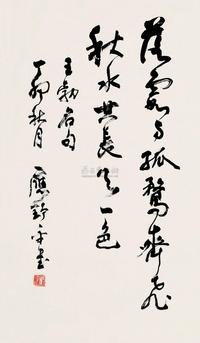 落霞与孤鹜齐飞
秋水共长天一色
王勃名句
丁卯秋月
应野平书